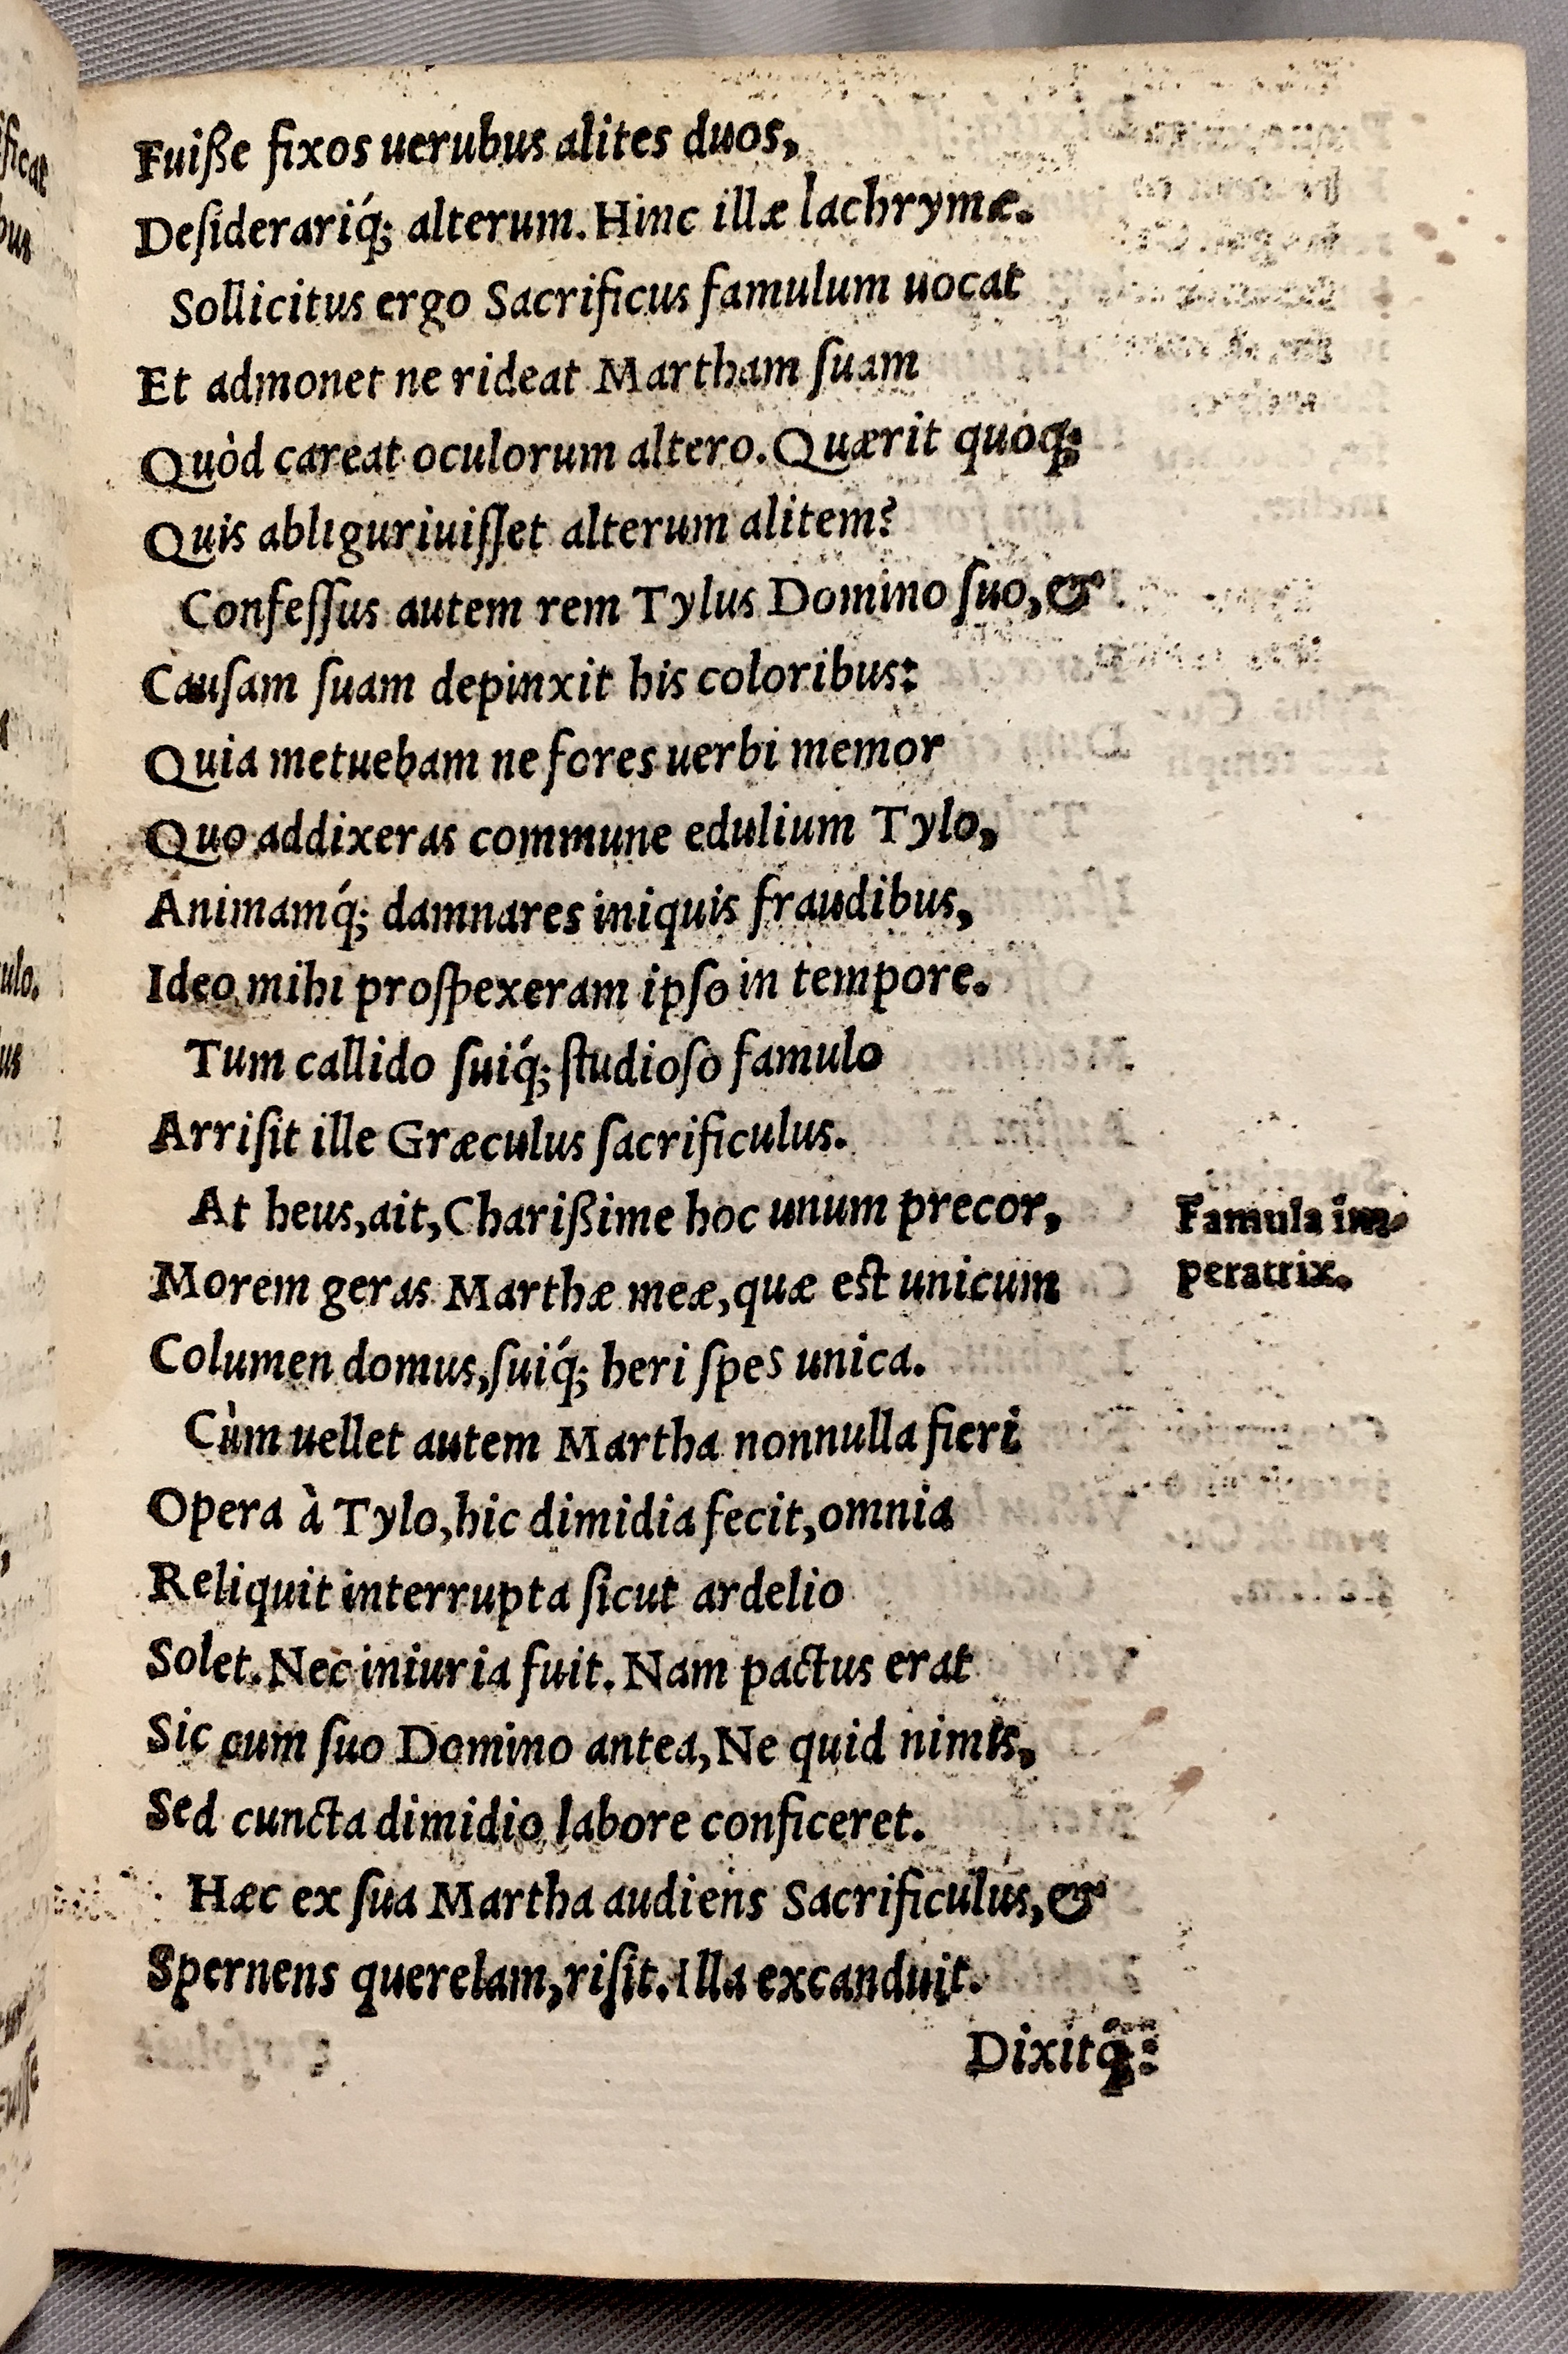 Fuiße fixos uerubus alites duos,
Deſiderariq́; alterum. Hinc illæ lachrymæ.
Sollicitus ergo Sacrificus famulum uocat
Et admonet ne rideat Martham ſuam
Quòd careat oculorum altero. Quærit quoq;
Quis abliguriuiſſet alterum alitem?
Confeſſus autem rem Tylus Domino ſuo, &
Cauſam ſuam depinxit his coloribus:
Quia metuebam ne fores uerbi memor
Quo addixeras commune edulium Tylo,
Animamq́; damnares iniquis fraudibus,
Ideo mihi proſpexeram ipſo in tempore.
Tum callido ſuiq́; ſtudioſo famulo
Arriſit ille Græculus ſacrificulus.
At heus, ait, Charißime hoc unum precor,
Famula im-
peratrix.
Morem geras Marthæ meæ, quæ eſt unicum
Columen domus, ſuiq́; heri ſpes unica.
Cùm uellet autem Martha nonnulla fieri
Opera à Tylo, hic dimidia fecit, omnia
Reliquit interrupta ſicut ardelio
Solet. Nec iniuria fuit. Nam pactus erat
Sic cum ſuo Domino antea, Ne quid nimis,
Sed cuncta dimidio labore conficeret.
Hæc ex ſua Martha audiens Sacrificulus, &
Spernens querelam, riſit. Illa excanduit.
Dixitq́;